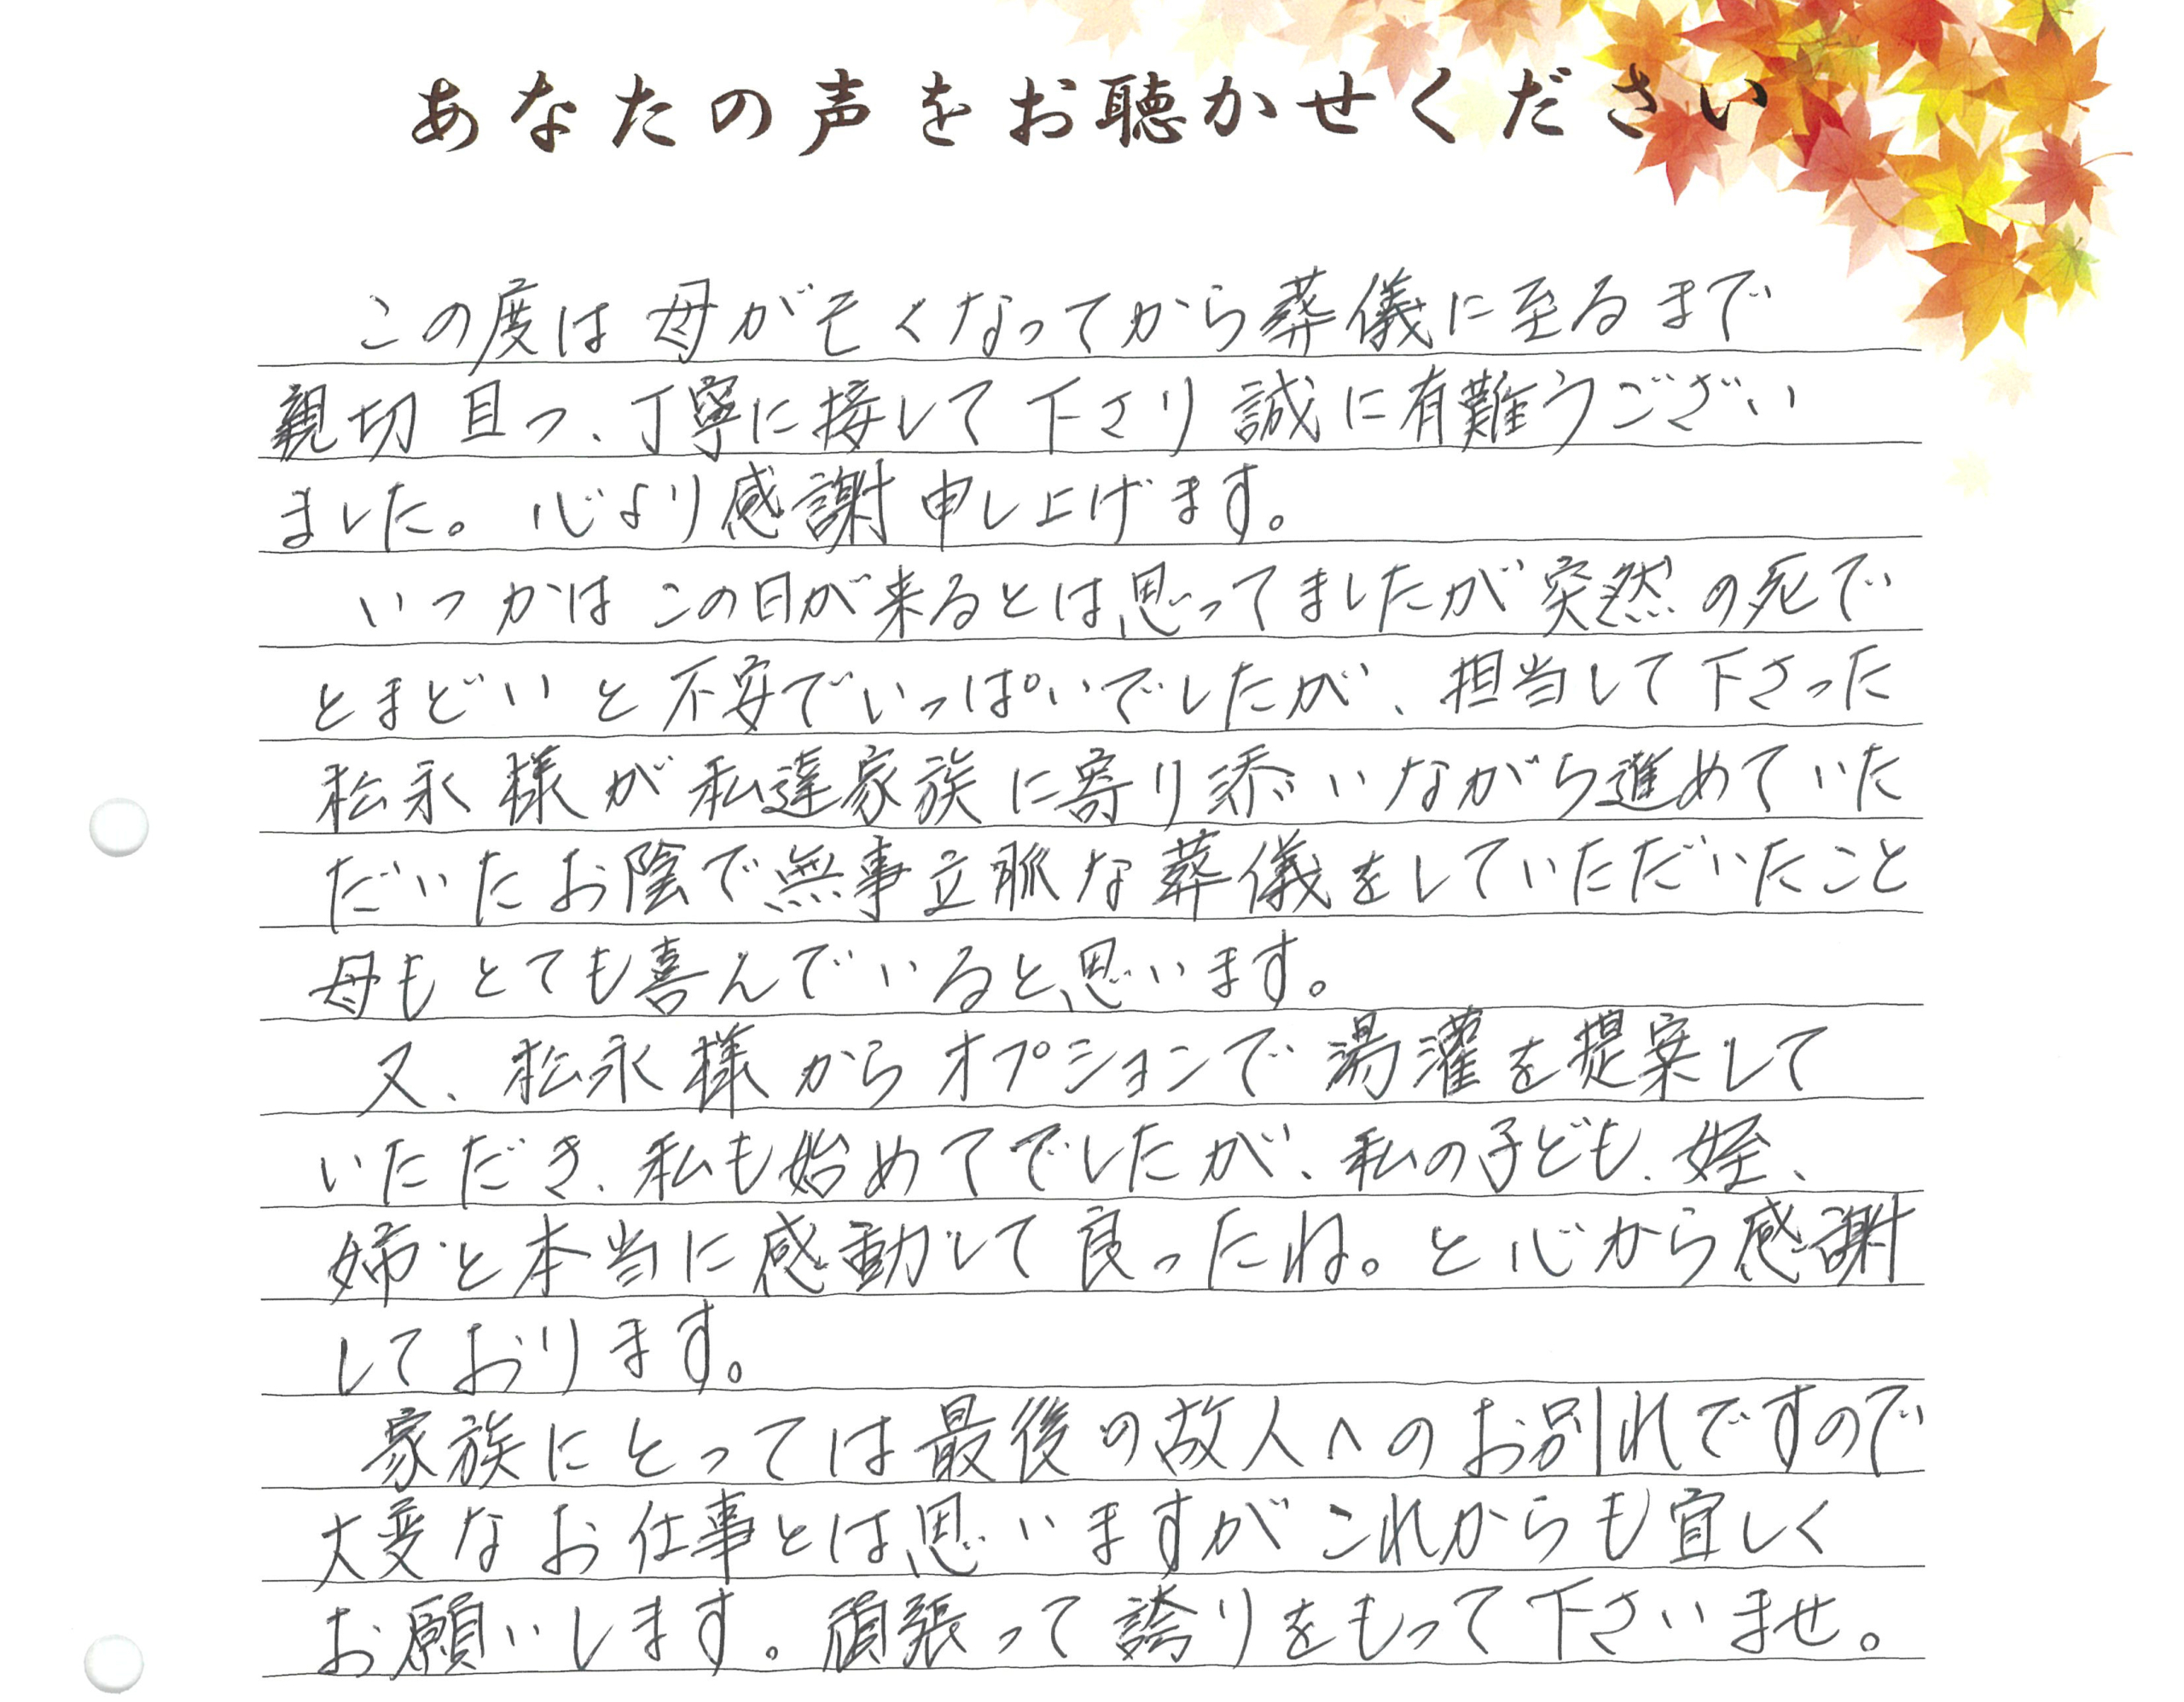 あなたの声をお聴かせください
この度は母が亡くなってから葬儀に至るまで
親切且つ、丁寧に接して下さり誠に有難うござい
ました。心より感謝申し上げます。
いつかはこの日が来るとは思ってましたが突然の死で
とまどいと不安でいっぱいでしたが、担当して下さった
松永様が私達家族に寄り添いながら進めていた
だいたお陰で無事立派な葬儀をしていただいたこと
母もとても喜んでいると思います。
又、松永様からオプションで湯灌を提案して
いただき、私も始めてでしたが、私の子ども、姪、
姉と本当に感動して良ったね。と心から感謝
しております。
家族にとっては最後の故人へのお別れですので
大変なお仕事とは思いますがこれからも宜しく
お願いします。頑張って誇りをもって下さいませ。